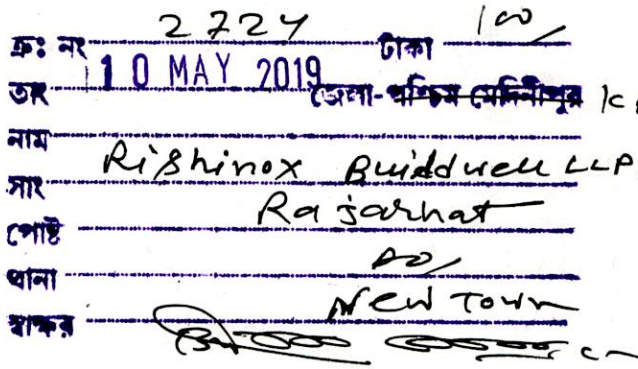 ক্রঃ নং 2724 টাকা 100/
তাং 10 MAY 2019 জেলা-পশ্চিম মেদিনীপুর
নাম
সাং Rishinox Buildwell LLP
পোষ্ট Rajarhat
থানা do/
স্বাক্ষর New Town